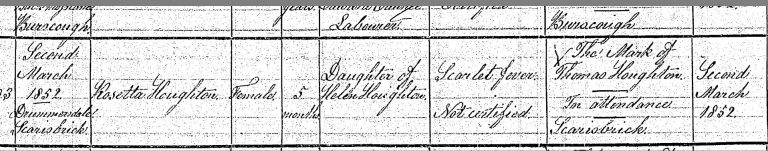 Burscough.
Labourer.
Burscough
Second
March
1852.
Drummersdale
Scarisbrick.
Rosetta Houghton.
Female.
5
months
Daughter of
Helen Houghton.
Scarlet fever.
Not certified.
The Mark of
Thomas Houghton.
In attendance
Scarisbrick.
Second
March
1852.